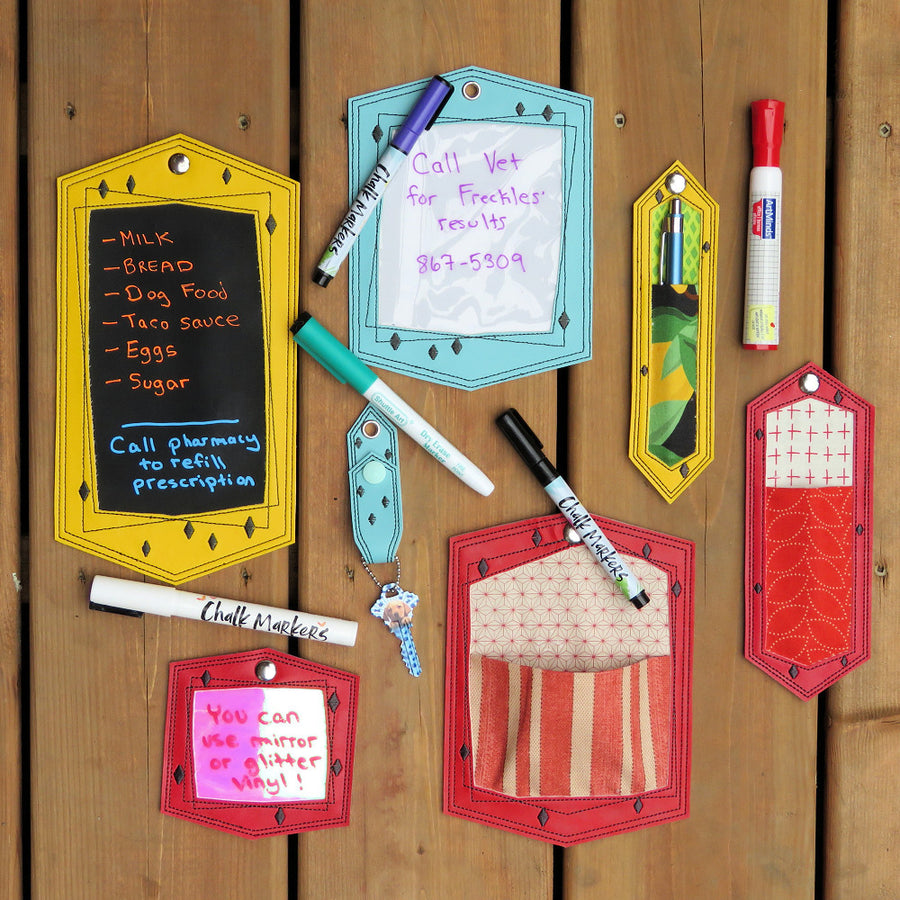 – MILK
– BREAD
– Dog Food
– Taco sauce
– Eggs
– Sugar
Call pharmacy
to refill
prescription
Call Vet
for Freckles'
results
867-5309
Chalk Markers
ArtMinds
Shuttle Art
Dry Erase
Marker
Chalk Markers
Chalk Markers
You can
use mirror
or glitter
vinyl!